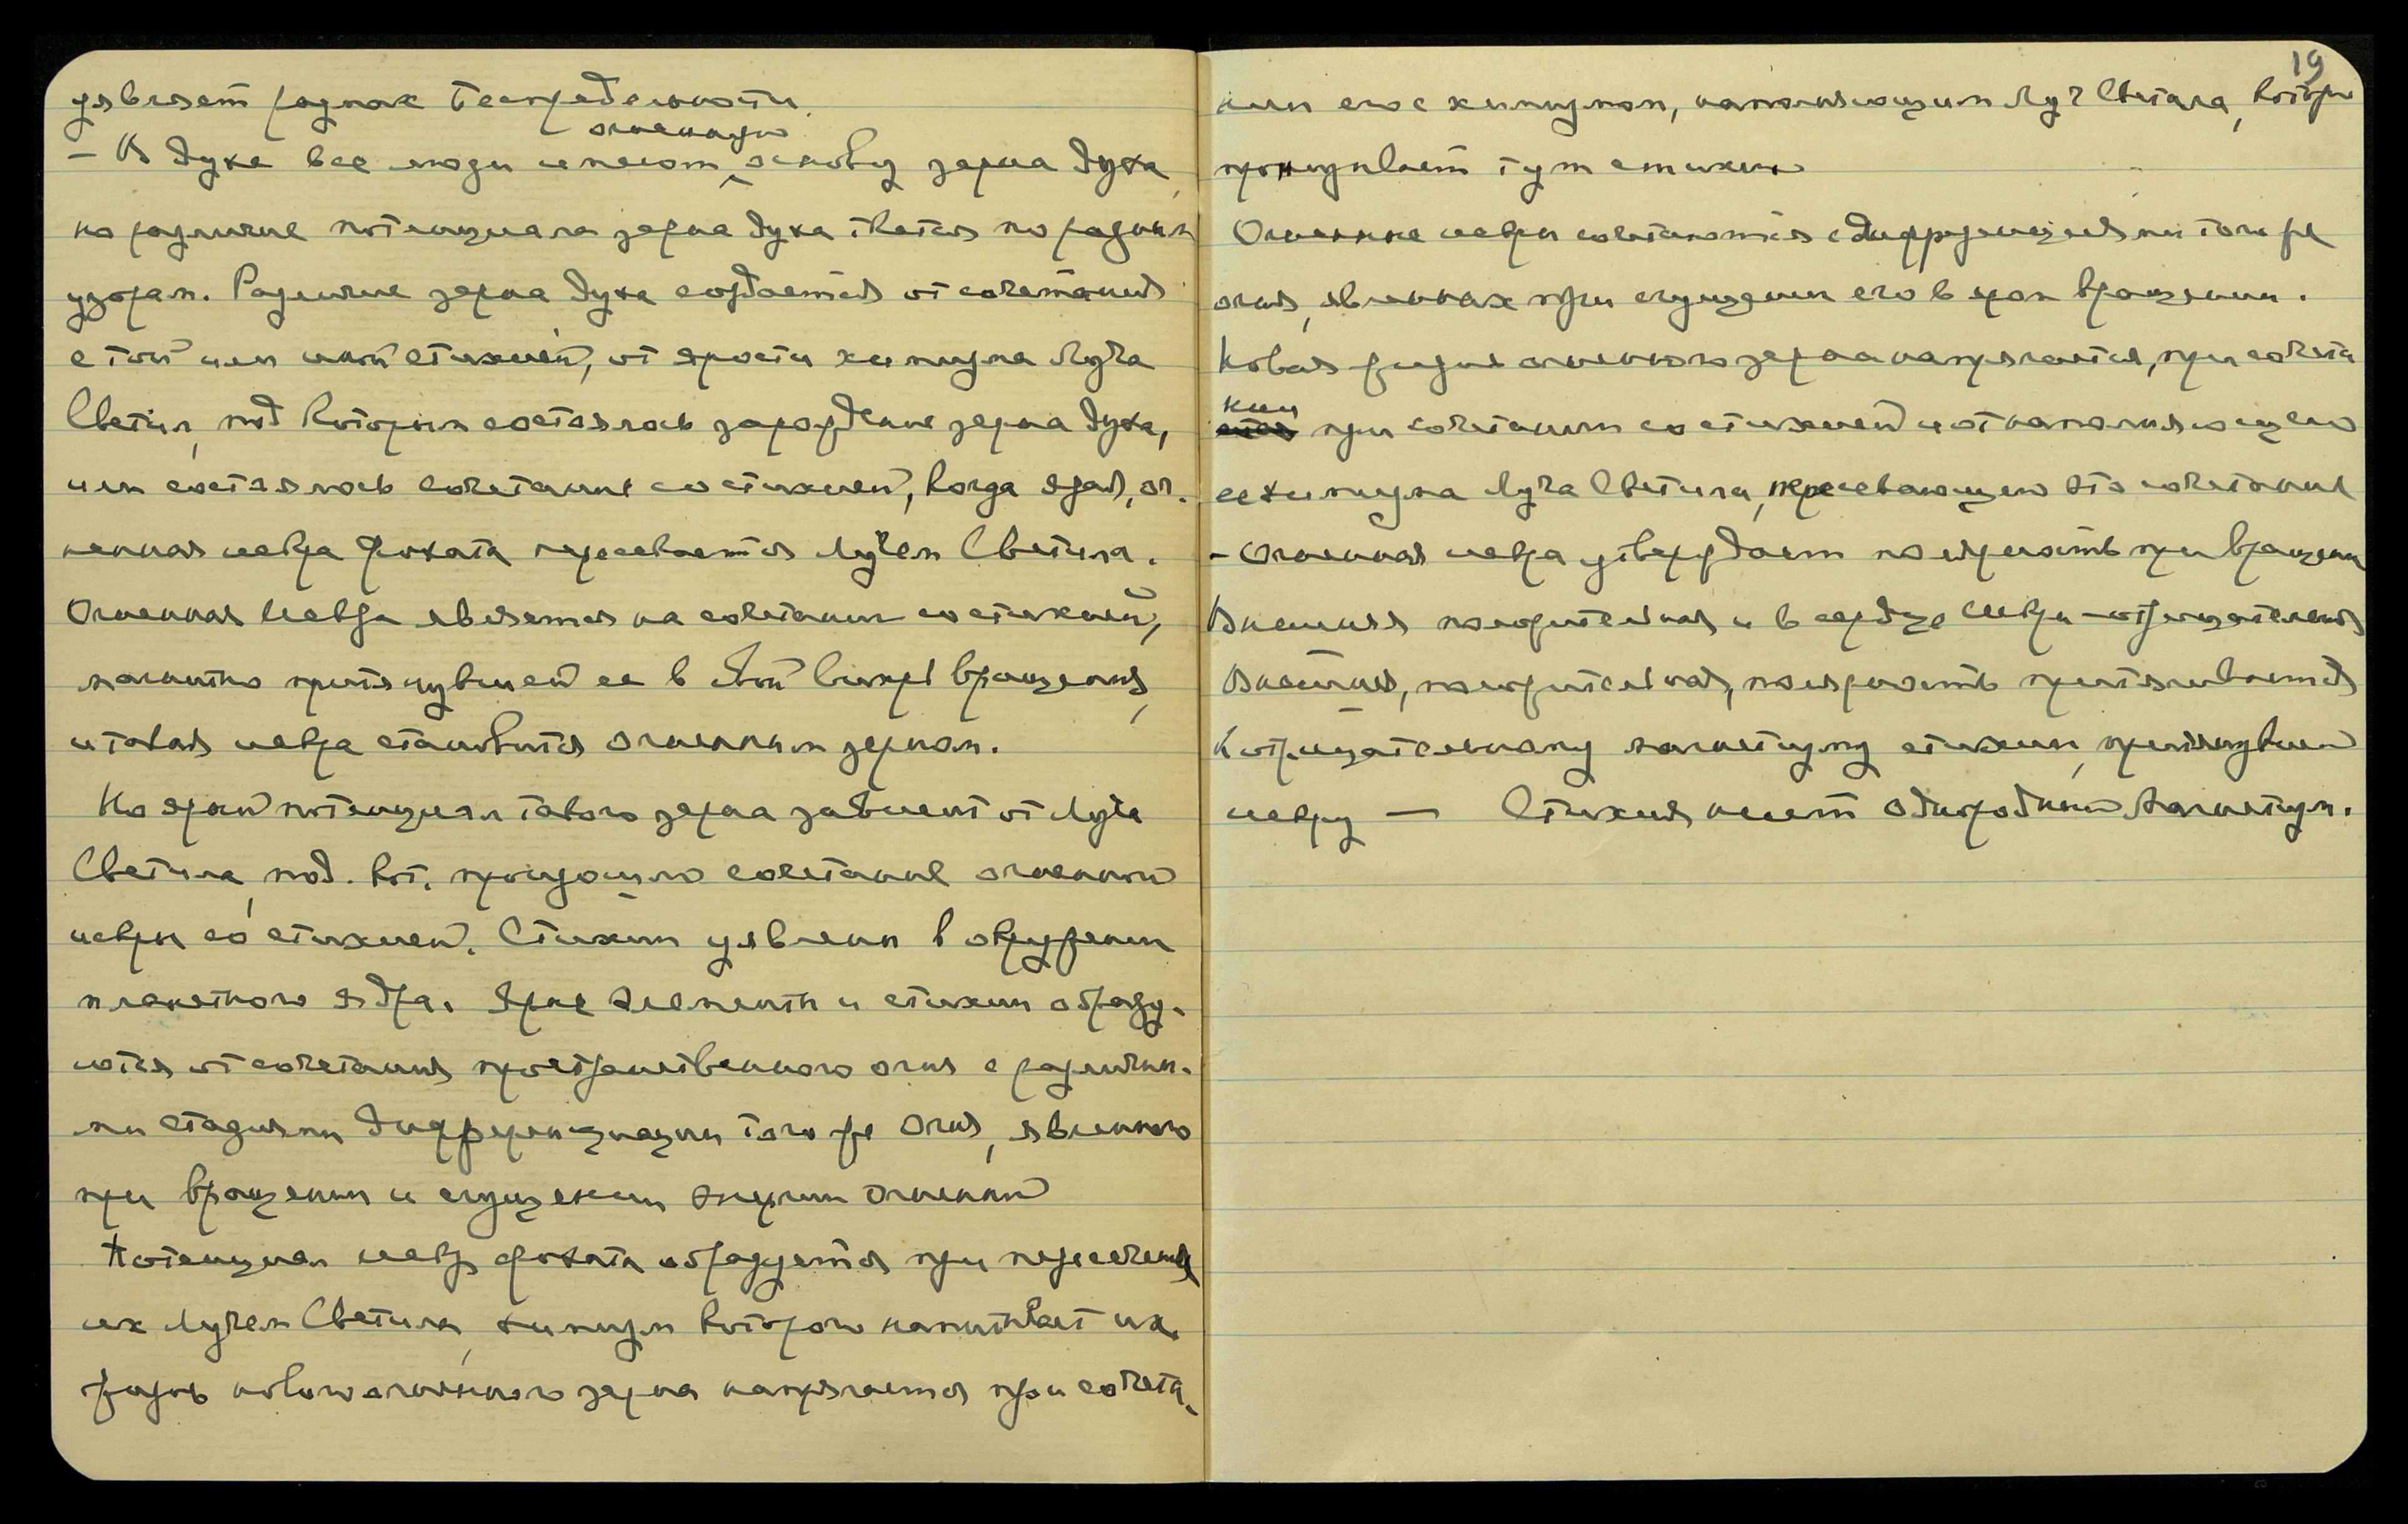 уявляет размах Беспредельности.
огненную
– В духе все люди имеют основу зерна духа,
но различие потенциала зерна духа ткется по разным
узорам. Различие зерна духа создается от сочетания
с той или иной стихией, от ярости химизма Луча
Светил, под которым состоялось зарождение зерна духа,
или состоялось сочетание со стихией, когда ярая, ог-
ненная искра Фохата пересекается Лучем Светила.
Огненная искра является на сочетании со стихией,
магнитно притянувшей ее в свой вихрь вращения,
и такая искра становится огненным зерном.
Но ярый потенциал такого зерна зависит от Луча
Светила, под. кот. произошло сочетание огненной
искры со стихией. Стихии уявлены в окружении
планетного ядра. Ярые элементы и стихии образу-
ются от сочетания пространственного огня с различны-
ми стадиями дифференциации того же Огня, явленного
при вращении и сгущении энергии огненной
Потенциал искр фохата образуется при пересечении
их Лучем Светила, химизм которого напитывает их.
Жизнь нового огненного зерна напрягается при сочета-
19
нии его с химизмом, наполняющим Луч Светила, который
пронизывает ту стихию
Огненные искры сочетаются с дифференциациями того же
огня, явленных при сгущении его в яром вращении.
Новая жизнь огненного зерна напрягается, при сочета
нии
при сочетании со стихией и от наполняющего
ее химизма Луча Светила, пересекающего это сочетание
– Огненная искра утверждает полярность при вращении
Внешняя положительная и в сердце искры – отрицательная
Внешняя, положительная, полярность притягивается
к отрицательному магнетизму стихии, притянувшей
искру — Стихия имеет однородный магнетизм.